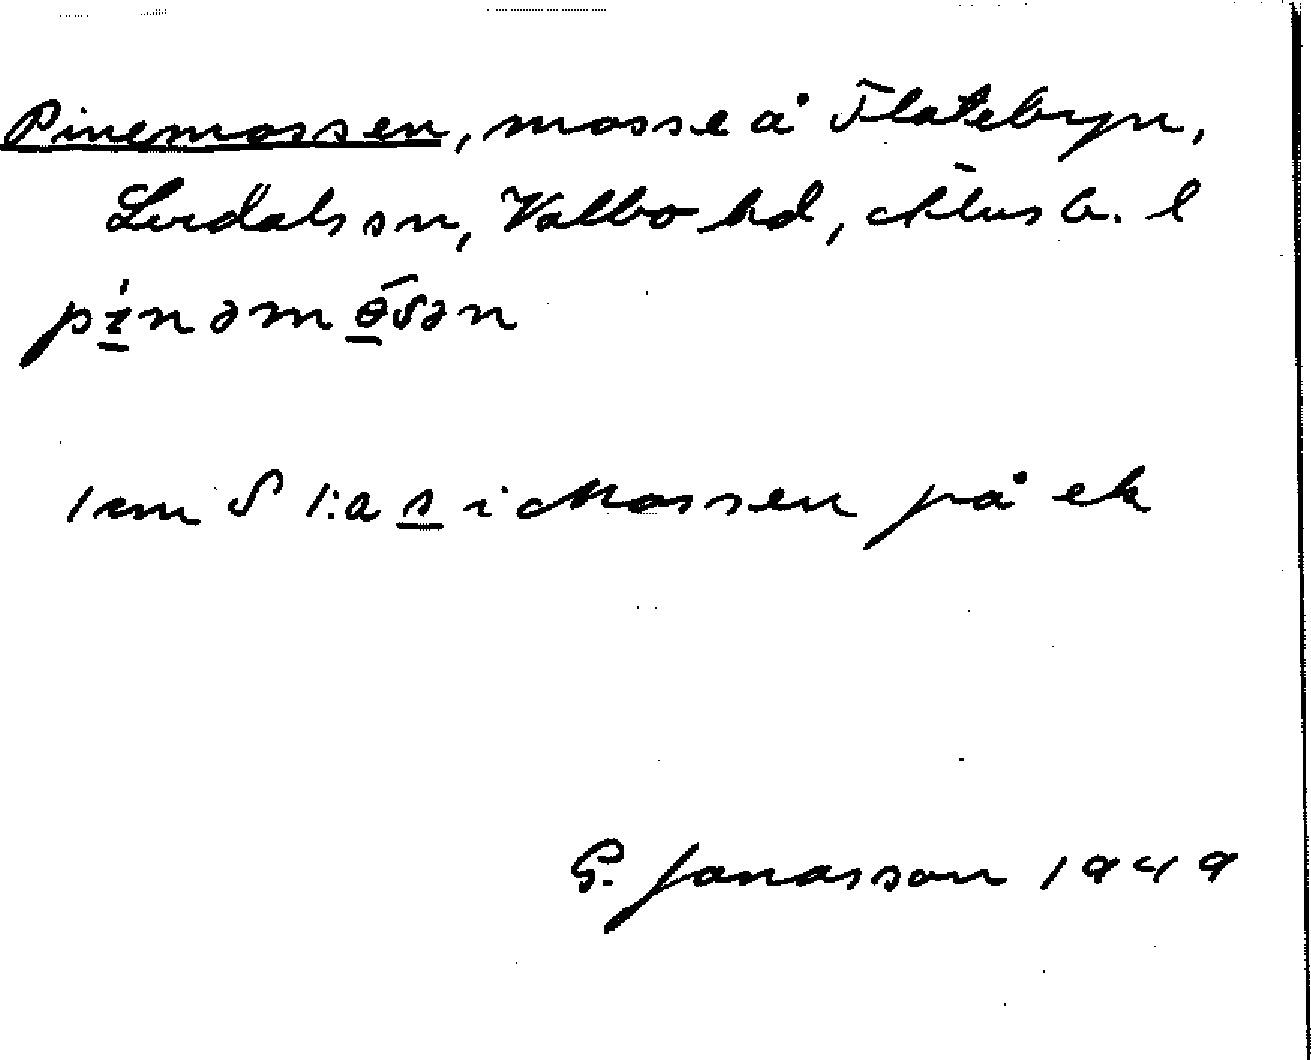 Pinemossen, mosse å Flatebyn,
Lerdals sn, Valbo hd, Älvsb. l
pi̱nəmɵ̱́sən
1 cm S 1:a s i Mossen på ek
G. Jonasson 1949